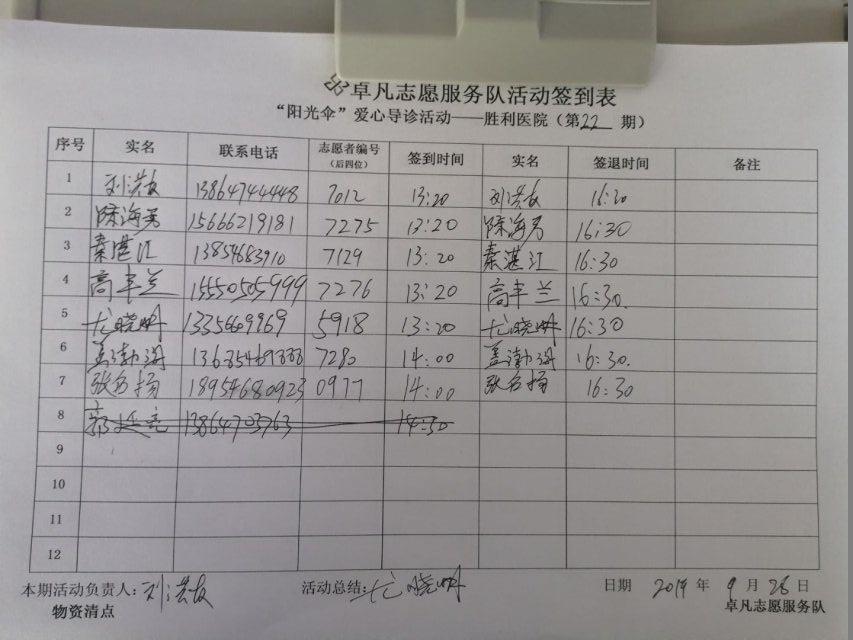 卓凡志愿服务队活动签到表
“阳光伞”爱心导诊活动——胜利医院（第22期）
序号 实名 联系电话 志愿者编号（后四位） 签到时间 实名 签退时间 备注
1 刘洪友 13864744448 7012 13:20 刘洪友 16:20
2 陈海芳 15666219181 7275 13:20 陈海芳 16:30
3 秦湛江 13854683910 7129 13:20 秦湛江 16:30
4 高丰兰 15550505999 7276 13:20 高丰兰 16:30.
5 尤晓明 5918 13:20 尤晓明 16:30
6 孟渤海 7280 14:00 孟渤海 16:30.
7 张名扬 18954680923 0977 14:00 张名扬 16:30
8 郭延亮 13864703763 14:30
9
10
11
12
本期活动负责人：刘洪友 活动总结：尤晓明 日期 2019年9月26日
物资清点 卓凡志愿服务队